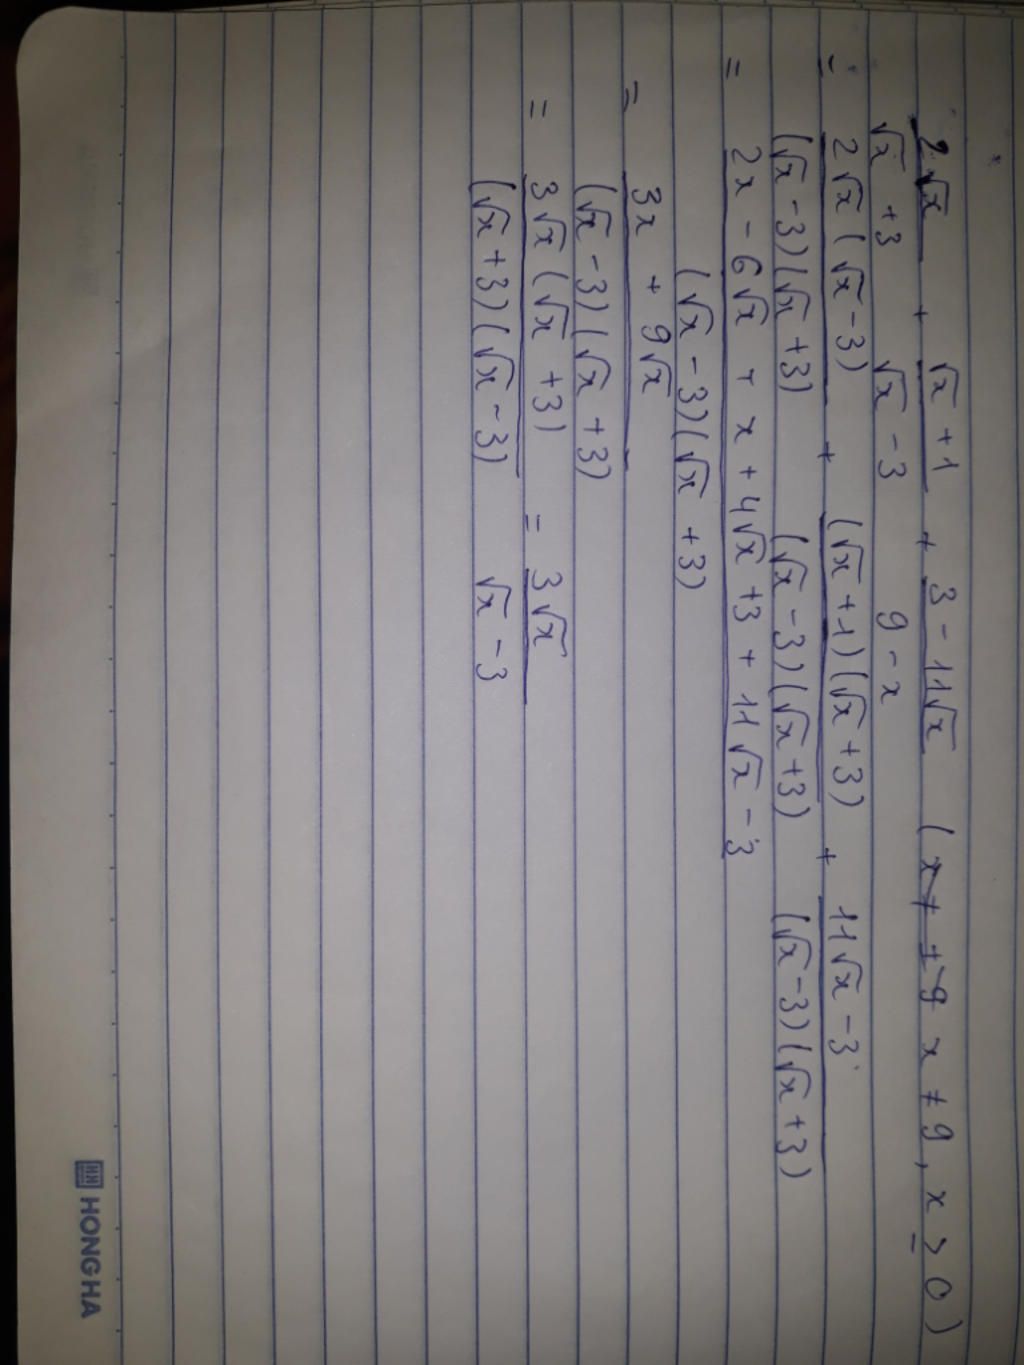 2√x / (√x + 3) + (√x + 1) / (√x - 3) + (3 - 11√x) / (9 - x) (x ≠ 9, x ≥ 0)
= 2√x(√x - 3) / (√x - 3)(√x + 3) + (√x + 1)(√x + 3) / (√x - 3)(√x + 3) + (11√x - 3) / (√x - 3)(√x + 3)
= (2x - 6√x + x + 4√x + 3 + 11√x - 3) / (√x - 3)(√x + 3)
= (3x + 9√x) / (√x - 3)(√x + 3)
= 3√x(√x + 3) / (√x + 3)(√x - 3) = 3√x / (√x - 3)
HONG HA